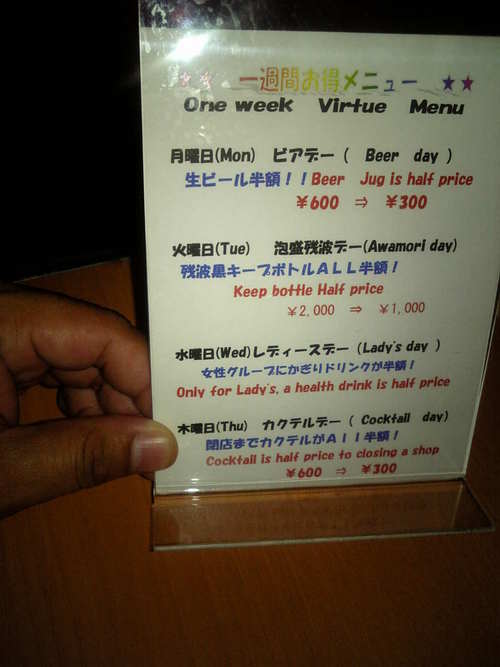 ★★ 一週間お得メニュー ★★
One week Virtue Menu
月曜日(Mon) ビアデー ( Beer day )
生ビール半額！！Beer Jug is half price
￥600 ⇒ ￥300
火曜日(Tue) 泡盛残波デー(Awamori day)
残波黒キープボトルＡＬＬ半額！
Keep bottle Half price
￥2,000 ⇒ ￥1,000
水曜日(Wed)レディースデー (Lady's day )
女性グループにかぎりドリンクが半額！
Only for Lady's, a health drink is half price
木曜日(Thu) カクテルデー ( Cocktail day)
閉店までカクテルがＡｌｌ半額！
Cocktail is half price to closing a shop
￥600 ⇒ ￥300